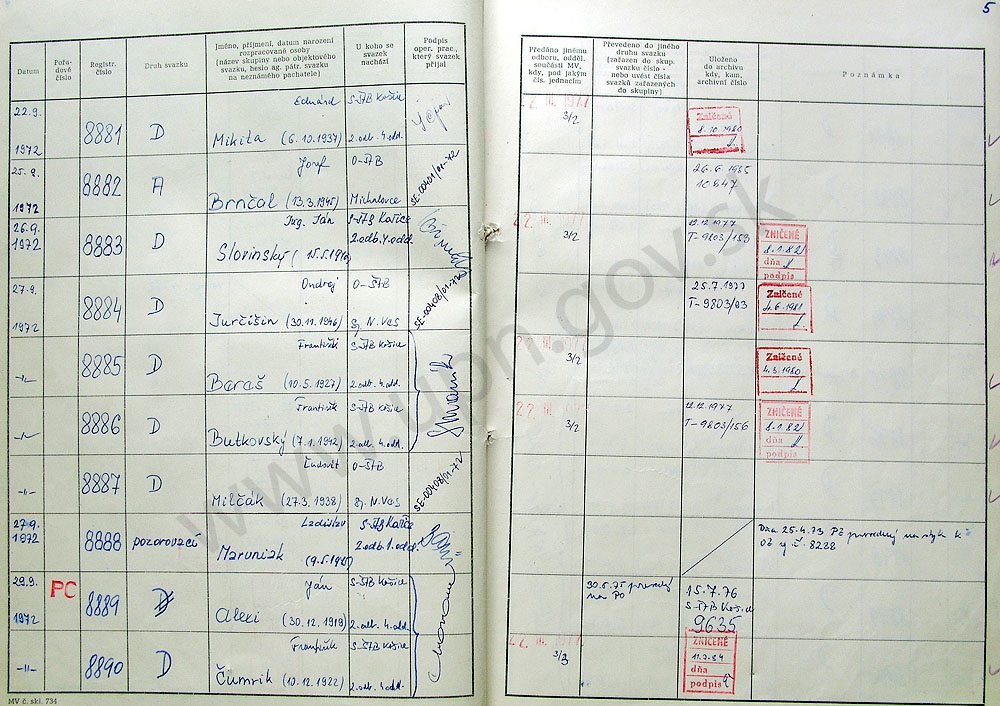 5
Datum
Pořa-
dové
číslo
Registr.
číslo
Druh svazku
Jméno, příjmení, datum narození
rozpracované osoby
(název skupiny nebo objektového
svazku, heslo ag. pátr. svazku
na neznámého pachatele)
U koho se
svazek
nachází
Podpis
oper. prac.,
který svazek
přijal
Předáno jinému
odboru, odděl.
součásti MV,
kdy, pod jakým
čís. jednacím
Převedeno do jiného
druhu svazku
(zařazen do skup.
svazku číslo -
nebo uvést čísla
svazků zařazených
do skupiny)
Uloženo
do archivu
kdy, kam,
archivní číslo
Poznámka
22.9.
1972
8881
D
Eduárd
Mikita (6.10.1937)
S-ŠtB Košice
2.odb. 4.odd.
22. III. 1977
3/2
Zničené
8.10.1980
25.9.
1972
8882
A
Jozef
Brnčal (13.3.1945)
O-ŠtB
Michalovce
SE-00401/01-72
26.6.1985
10847
26.9.
1972
8883
D
Ing. Ján
Slovinský
S-ŠtB Košice
2.odb. 4.odd.
22. III. 1977
3/2
12.12.1977
T-9803/159
ZNIČENÉ
8.1.82
dňa
podpis
27.9.
1972
8884
D
Ondrej
Jurčišin (30.11.1946)
O-ŠtB
Sp. N. Ves
25.7.1977
T-9803/93
Zničené
4.6.1981
-"-
8885
D
František
Baraš (10.5.1927)
S-ŠtB Košice
2.odb. 4.odd.
22. III. 1977
3/2
Zničené
4.3.1980
-"-
8886
D
František
Butkovský (7.1.1942)
S-ŠtB Košice
2.odb. 4.odd.
22. III. 1977
3/2
12.12.1977
T-9803/156
ZNIČENÉ
8.1.82
dňa
podpis
-"-
8887
D
Ľudovít
Milčák (27.3.1938)
O-ŠtB
Sp. N. Ves
27.9.
1972
8888
pozorovací
Ladislav
Maruniak
S-ŠtB Košice
2.odb. 1.odd.
Dňa 25.4.73
29.9.
1972
PC
8889
D
Ján
Alexi (30.12.1919)
S-ŠtB Košice
2.odb. 4.odd.
30.6.75
na PO
15.7.76
S-ŠtB Košice
9635
-"-
8890
D
František
Čumrik (10.12.1922)
S-ŠtB Košice
2.odb. 4.odd.
22. III. 1977
3/3
ZNIČENÉ
dňa
podpis
MV č. skl. 734
www.upn.gov.sk